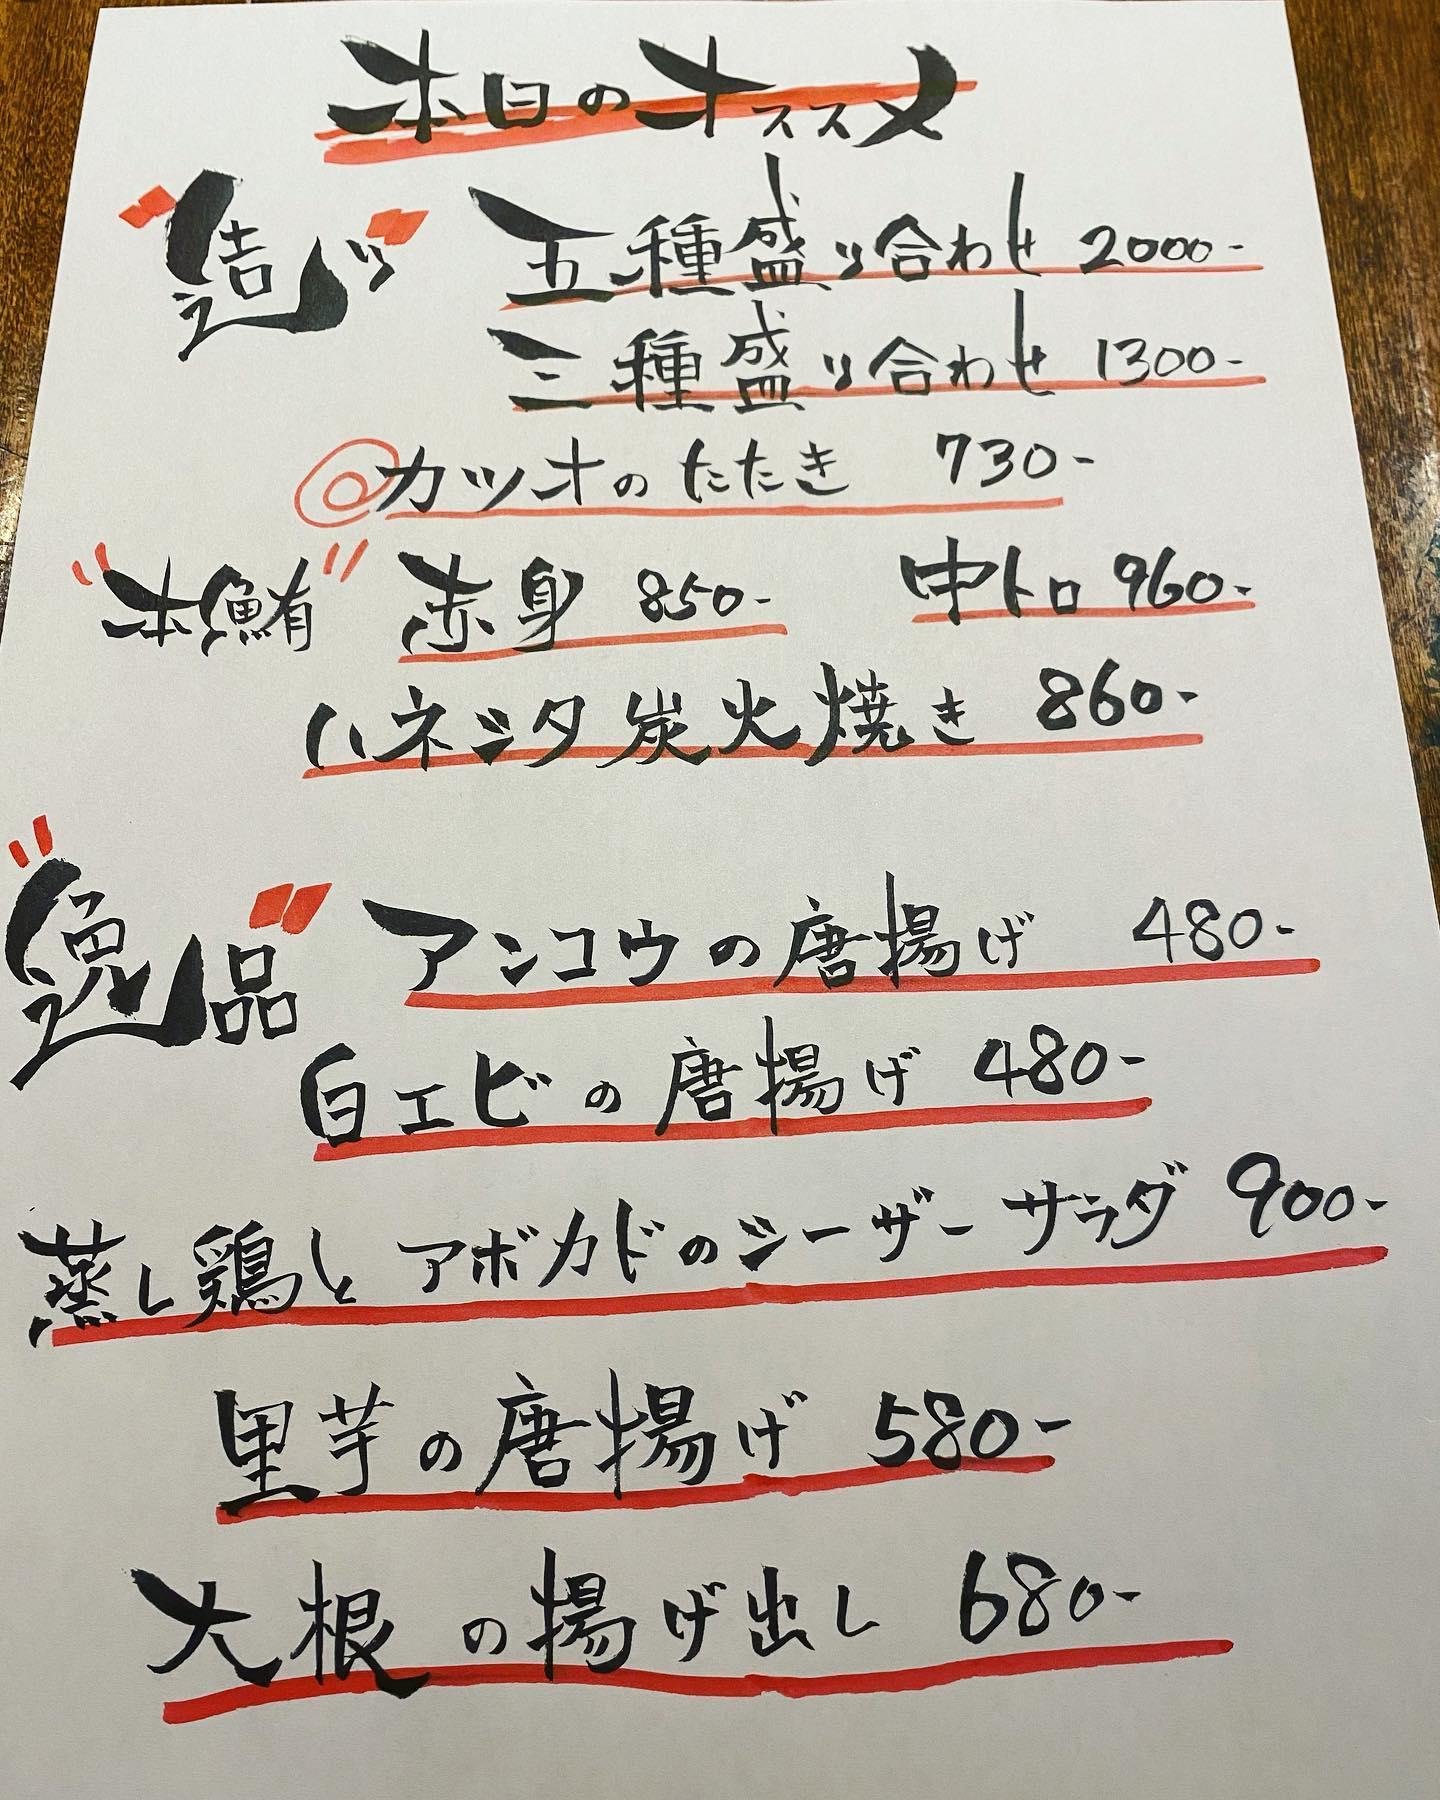 本日のオススメ
造り 五種盛り合わせ 2000-
三種盛り合わせ 1300-
カツオのたたき 730-
本鮪 赤身 850- 中トロ 960-
ハネシタ炭火焼き 860-
逸品 アンコウの唐揚げ 480-
白エビの唐揚げ 480-
蒸し鶏とアボカドのシーザーサラダ 900-
里芋の唐揚げ 580-
大根の揚げ出し 680-